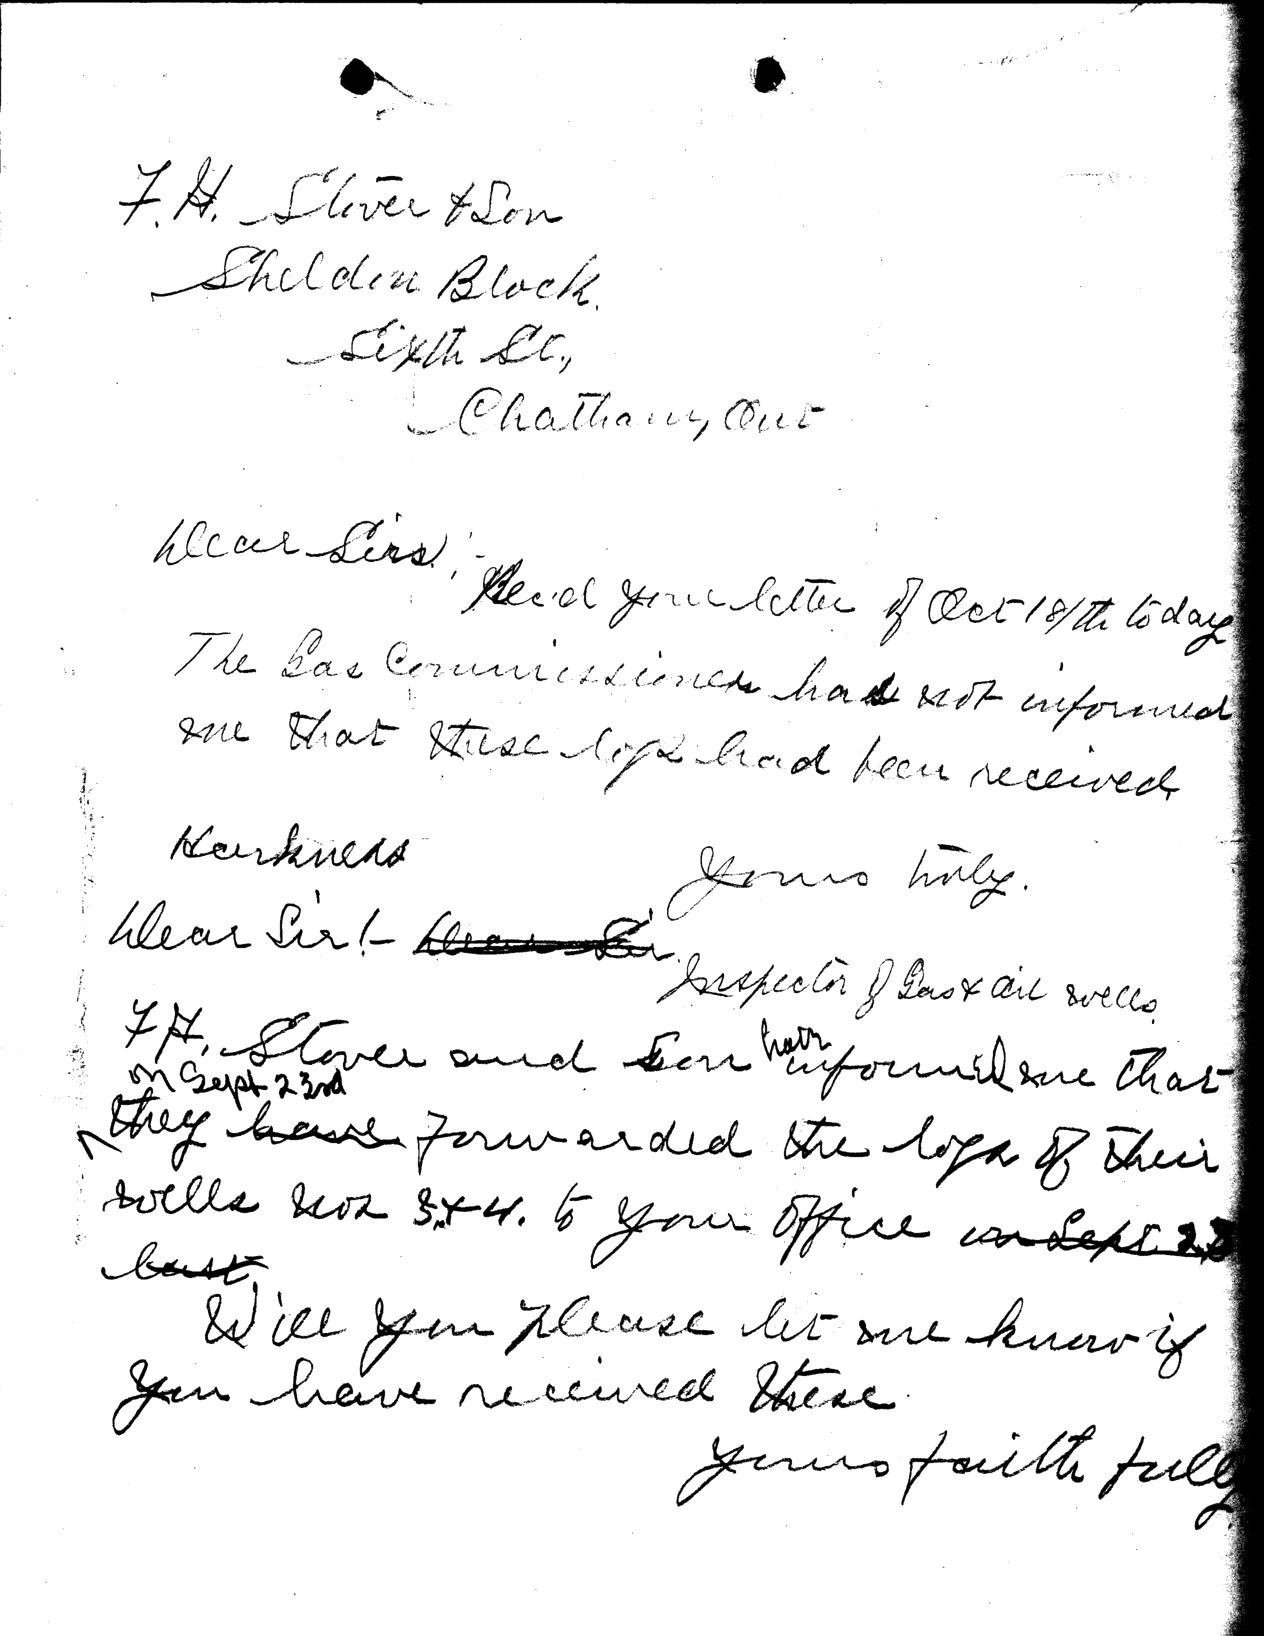 F. H. Stover & Son
Sheldon Block.
Sixth St.,
Chatham, Ont
Dear Sirs:-
Rec'd your letter of Oct 18/th today
The Gas Commissioner has not informed
me that these logs had been received.
Harkness
Yours truly.
Dear Sir!- Dear Sir.
Inspector of Gas & Oil wells.
F.H. Stover and Son have informed me that
on Sept 23rd
they have forwarded the logs of their
wells nos 3 & 4. to your office on Sept. 23
last.
Will you please let me know if
you have received these.
Yours faithfully